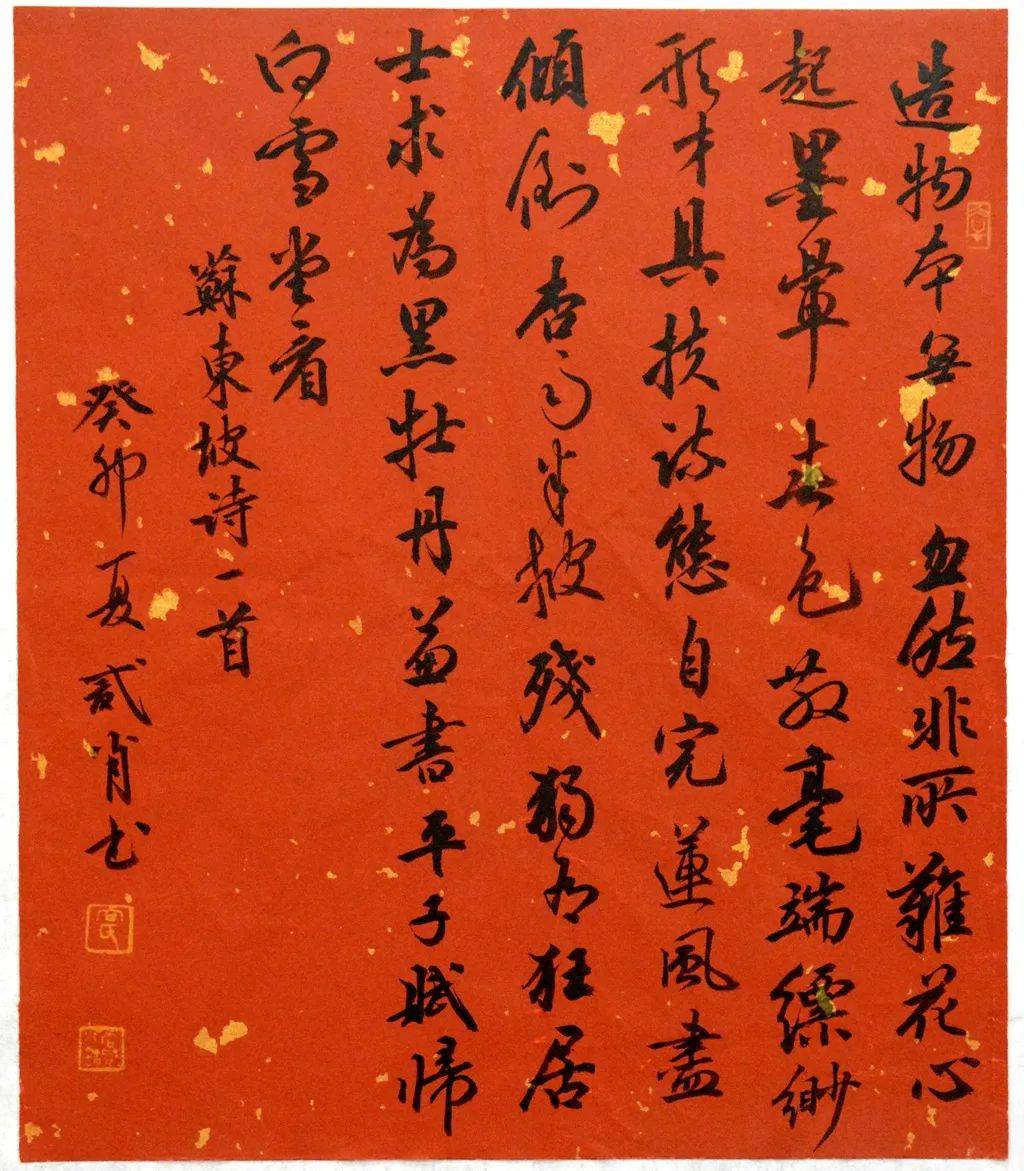 造物本無物忽然非所難花心
起墨暈春色散毫端縹緲
形才具扶疏態自完蓮風盡
傾倒杏雨半披殘獨有狂居
士求為黑牡丹兼書平子賦歸
向雪堂看
蘇東坡诗一首
癸卯夏貳肖书